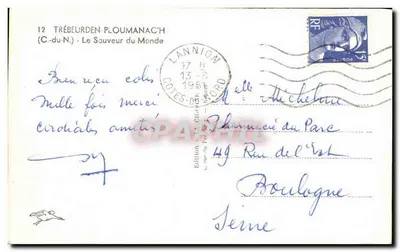 12 TRÉBEURDEN PLOUMANAC'H
(C-du-N.) - Le Sauveur du Monde
LANNION
17 H
13-
COTES-DU-NORD
RF
15
Bien reçu colis
Mille fois merci
cordiales amitiés
Melle Micheline
Pharmacie du Parc
49 Rue de l'Est
Boulogne
Seine